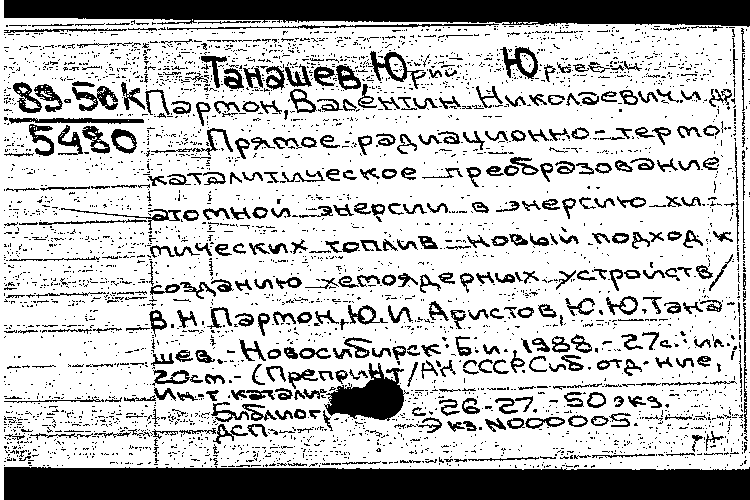 89-50К
5480
Танашев, Юрий Юрьевич
Пармон, Валентин Николаевич и др.
Прямое радиационно-термо-
каталитическое преобразование
атомной энергии в энергию хи-
мических топлив - новый подход к
созданию хемоядерных устройств/
В.Н. Пармон, Ю.И. Аристов, Ю.Ю. Тана-
шев. - Новосибирск: Б.и., 1988. - 27с.: ил.;
20см. - (Препринт/АН СССР. Сиб. отд-ние,
Ин-т катали
Библиогр с. 26-27. - 50 экз.
ДСП. Экз. N000005.